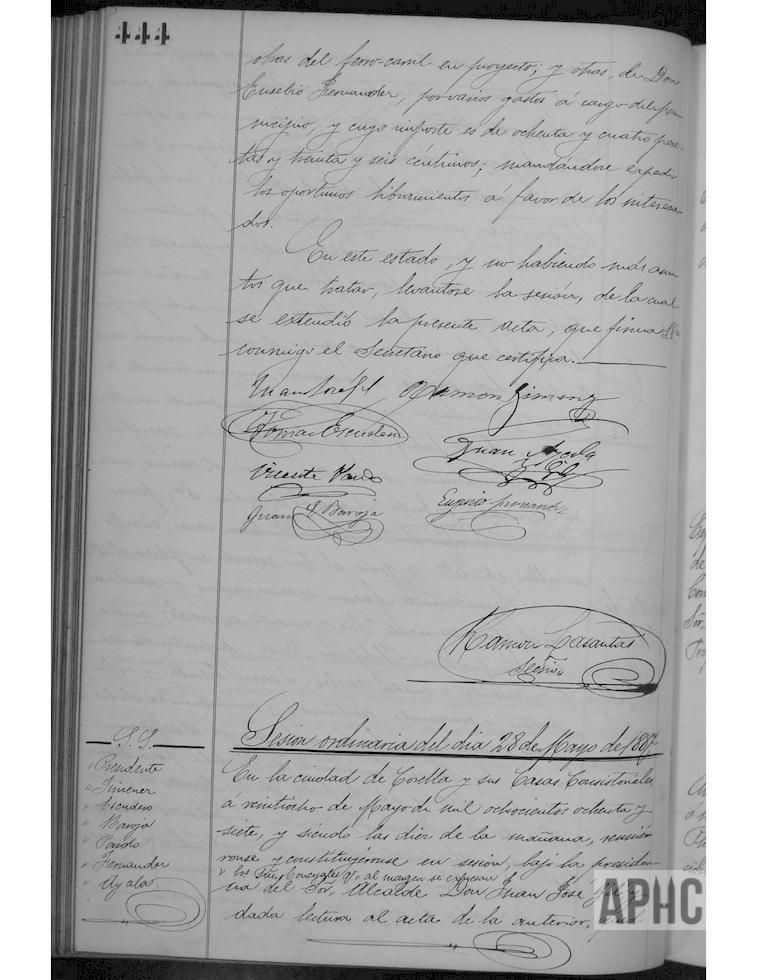 444
obras del ferro-carril en proyecto; y otras, de Don
Eusebio Fernandez, por varios gastos á cargo del mu
nicipio, y cuyo importe es de ochenta y cuatro pese-
tas y treinta y seis céntimos; mandándose expedir
los oportunos libramientos á favor de los interesa-
dos.
En este estado, y no habiendo más asun
tos que tratar, levantose la sesión, de la cual
se extendió la presente acta, que firma
conmigo el Secretario que certifica.
Juan José Ramon Gimenez
Tomas Escudero
Juan Ayala
Vicente Pardo
Juan Baroja
Eugenio Fernandez
Ramon Lasantas
Srio
S.S.
Sesion ordinaria del dia 28 de Mayo de 1887
" Presidente
" Jimenez
" Escudero
" Baroja
" Pardo
" Fernandez
" Ayala
En la ciudad de Corella y sus Casas Consistoriales
á veintiocho de Mayo de mil ochocientos ochenta y
siete, y siendo las diez de la mañana, reunie-
ronse y constituyéronse en sesión, bajo la presiden-
" los Sres. Concejales q" al margen se expresan
cia del Sor. Alcalde Don Juan José
dada lectura al acta de la anterior,
APHC